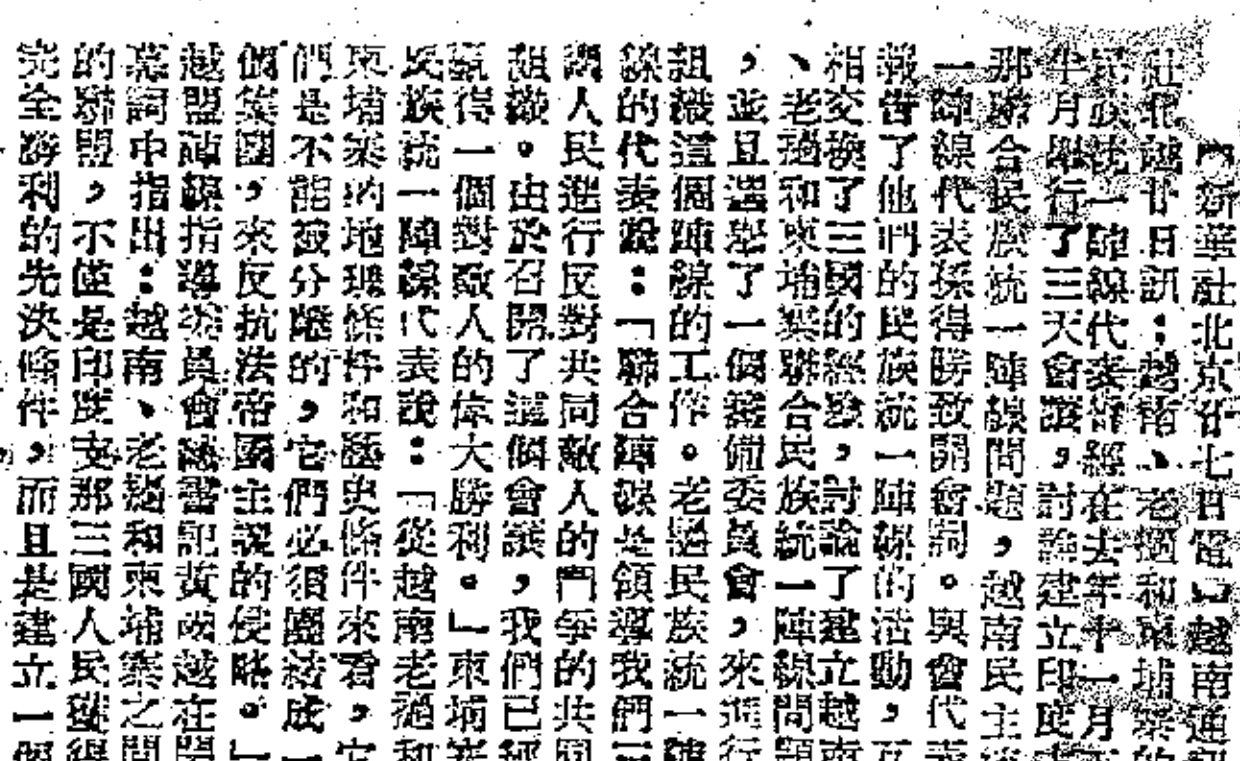 【新華社北京廿七日電】越南通訊
社北越廿日訊：越南、老撾和柬埔寨的
民族統一陣線代表曾經在去年十一月下
半月舉行了三天會議，討論建立印度支
那聯合民族統一陣線問題，越南民主
一陣線代表孫得勝致開會詞。與會代表
報告了他們的民族統一陣線的活動，互
相交換了三國的經驗，討論了建立越南
、老撾和柬埔寨聯合民族統一陣線問題
，並且選舉了一個籌備委員會，來進行
組織這個陣線的工作。老撾民族統一陣
線的代表說：「聯合陣線是領導我們三
國人民進行反對共同敵人的鬥爭的共同
組織。由於召開了這個會議，我們已經
贏得一個對敵人的偉大勝利。」柬埔寨
民族統一陣線代表說：「從越南老撾和
柬埔寨的地理條件和歷史條件來看，它
們是不能被分離的，它們必須團結成一
個集團，來反抗法帝國主義的侵略。」
越盟陣線指導委員會總書記黃國越在閉
幕詞中指出：越南、老撾和柬埔寨之間
的聯盟，不僅是印度支那三國人民獲得
完全勝利的先決條件，而且是建立一個